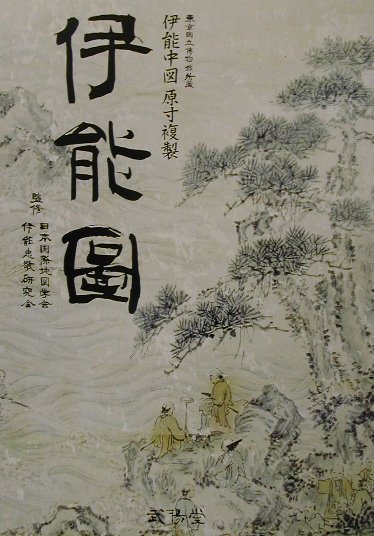 東京国立博物館所蔵
伊能中図原寸複製
伊能圖
監修
日本国際地図学会
伊能忠敬研究会
武揚堂